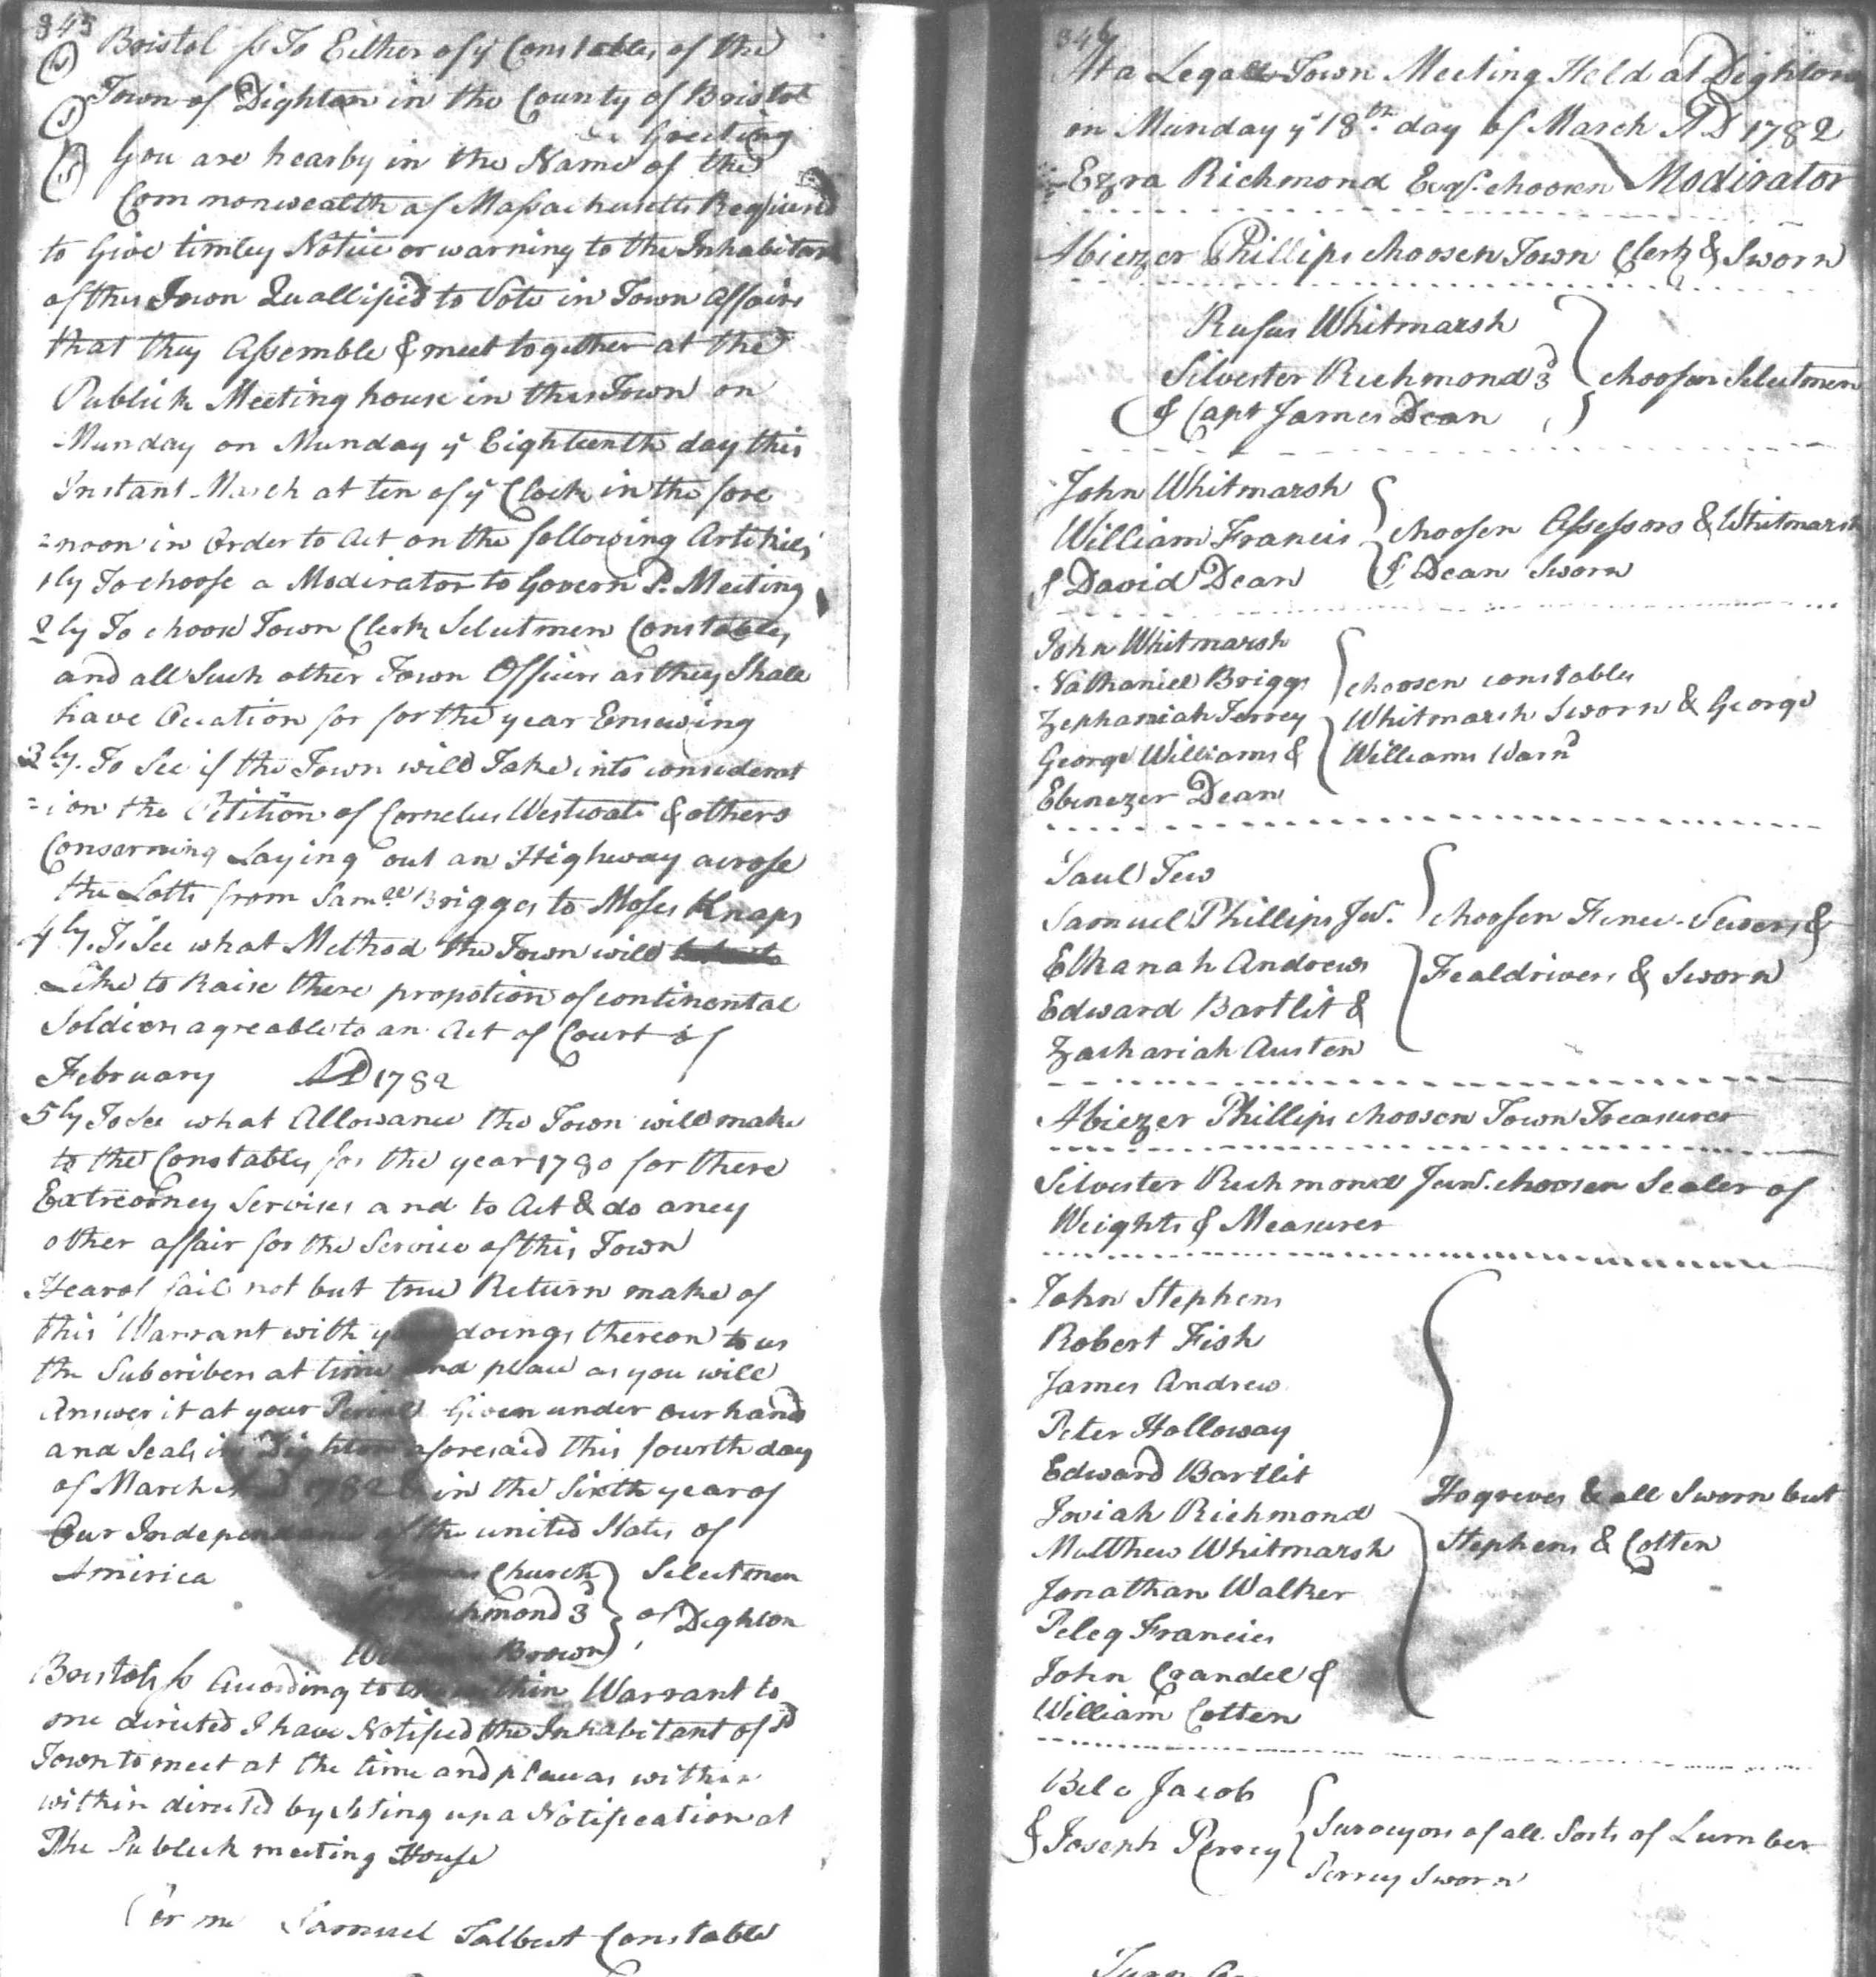 345
Bristol ss To Either of ye Constables of the
Town of Dighton in the County of Bristol
Greeting
You are hearby in the Name of the
Commonwealth of Massachusetts Required
to Give timley Notice or warning to the Inhabitants
of this Town Quallified to Vote in Town Affairs
that they Assemble & meet together at the
Publick Meeting house in this Town on
Munday on Munday ye Eighteenth day this
Instant March at ten of ye Clock in the fore
=noon in Order to Act on the following Artikles
1ly To choose a Moderator to Govern sd. Meeting
2ly To choose Town Clerk Selectmen Constables,
and all Such other Town Officers as they Shall
have Ocation for for the year Ensuwing
3ly. To See if the Town will Take into considerat
=ion the Petition of Cornelus Westcoate & others
Conserning Laying out an Highway acrose
the Lotts from Samll Brigges to Moses Knaps
4ly. To See what Method the Town will
Like to Raise there propotion of continental
Soldiers agreable to an Act of Court of
February AD 1782
5ly To See what Allowance the Town will make
to the Constables for the year 1780 for there
Extreorney Servises and to Act & do aney
other affair for the Service of this Town
Hearof fail not but true Return make of
this Warrant with your doings thereon to us
the Subcribers at time and place as you will
Answer it at your Perial Given under our hands
and Seals in Dighton aforesaid this fourth day
of March AD 1782 & in the Sixth year of
Our Independance of the united States of
America Thomas Church } Selectmen
Richmond 3d } of Dighton
William Brown }
Bristol ss Acording to the within Warrant to
me directed I have Notified the Inhabitant of sd
Town to meet at the time and place as within
within directed by Seting up a Notification at
The Publick meeting House
Per me Samuel Talbut Constable
346
At a Legall Town Meeting Held at Dighton
on Munday ye 18th. day of March AD 1782
Ezra Richmond Esqr. choosen Moderator
Abiezer Phillips choosen Town Clerk & Sworn
Rufus Whitmarsh
Silvester Richmond 3d } choosen Selectmen
& Capt James Dean
John Whitmarsh
William Francis } choosen Assessors & Whitmarsh
& David Dean & Dean Sworn
John Whitmarsh
Nathaniel Briggs } choosen constables
Zephaniah Terrey Whitmarsh Sworn & George
George Williams & Williams Warnd
Ebinezer Dean
Saul Tew
Samuel Phillips Jur. } choosen Fence-Vewers &
Elkanah Andrews Fealdrivers & Sworn
Edward Bartlit &
Zachariah Austen
Abiezer Phillips choosen Town Treasurer
Silvester Richmond Junr. choosen Sealer of
Weights & Measures
John Stephens
Robert Fish
James Andrew
Peter Holloway
Edward Bartlit
Josiah Richmond } Hogreves & all Sworn but
Matthew Whitmarsh Stephens & Cotten
Jonathan Walker
Peleg Francies
John Crandel &
William Cotten
Bela Jacob
& Joseph Perrey } Surveyors of all Sorts of Lumber
Perrey Sworn